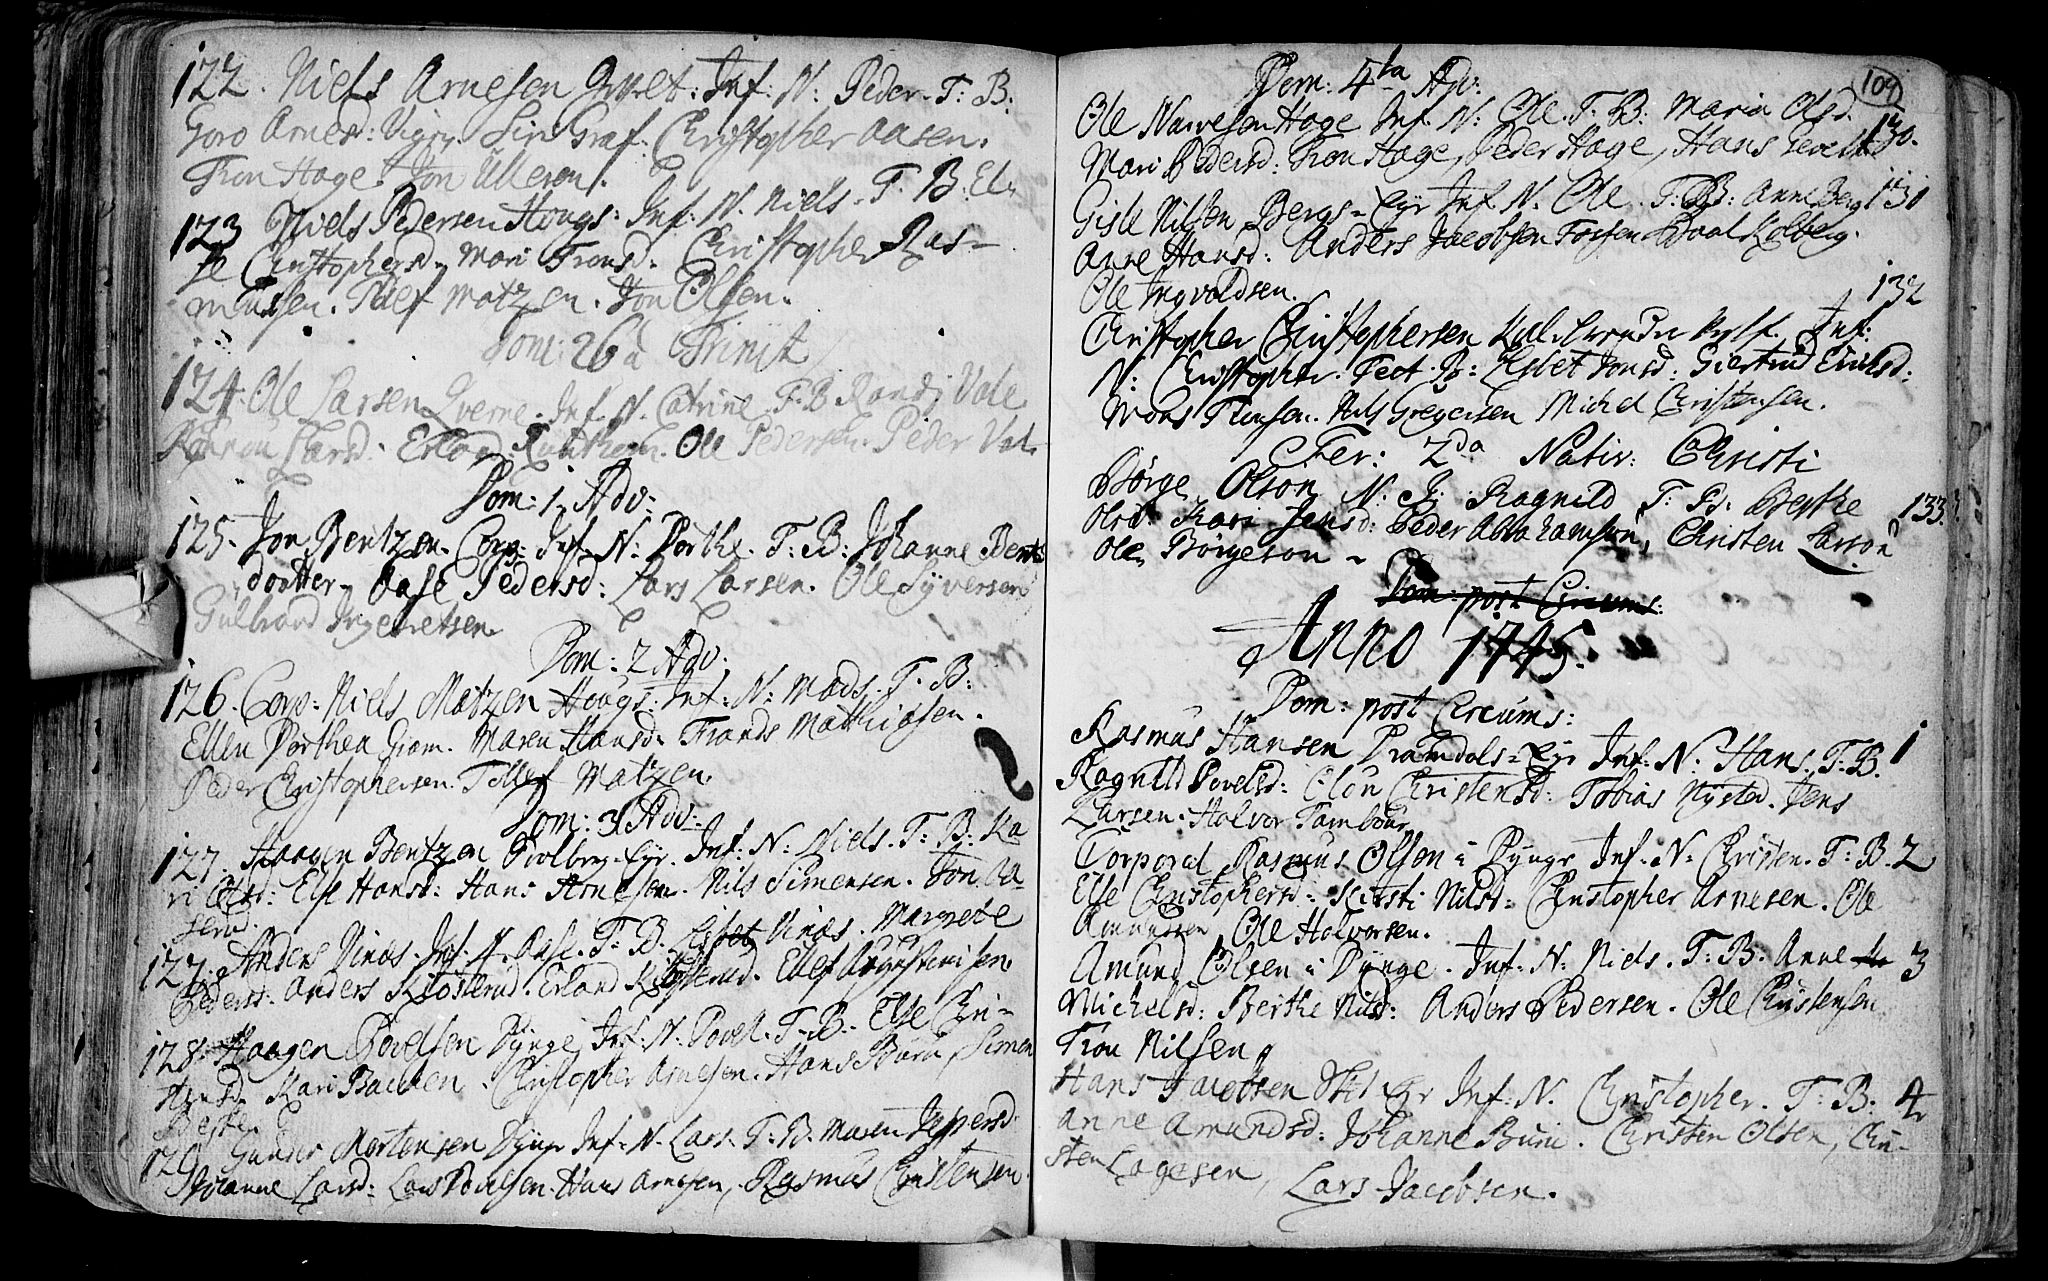 122. Niels Arnesen Inf: N: Peder. T: B:
Goro Arnesd: Siri Graf. Christopher Aasen.
Tron Hage. Jon Ulleren.
123 Niels Pedersen Hougs: Inf: N. Niels. T. B. El-
se Christophersd. Mari Tronsd. Christopher Ras-
mussen. Tollef Matzen. Jon Olsen.
Dom: 26 a Trinit
124. Ole Larsen Inf. N. Catrine. T. B. Randi Vale
Larsd. Erland Ole Pedersen. Peder Val-
Dom: 1. Adv:
125. Jon Bentzen. Inf. N: Dorthe. T: B: Johanne Bents
daatter, Aase Pedersd: Lars Larsen. Ole Syversen
Gulbrand Ingebretsen
Dom: 2 Adv:
126. Corp: Niels Matzen Hougs: Inf: N: Mads. T. B:
Ellen Dorthea Gram. Maren Hansd. Frands Mathiasen.
Peder Christophersen. Tollef Matzen.
Dom: 3 Adv:
127. Haagen Bentzen Inf: N: Niels. T: B: Ka
ri Else Hansd: Hans Arnesen. Nils Simensen. Jon La-
sen.
127. Anders Vinds. Inf. N. Aase. T: B. Lisbet Vinds. Margrete
Pedersd: Anders Klosterud. Erland Klosterud.
128. Haagen Povelsen Dynge Inf. N. Povel. T. B. Else Chri-
stensd. Kari Bachen. Christopher Arnesen. Hans Simen
129. Gunder Mortensen Dynge Inf. N. Lars. T: B. Maren Jeppersd:
Johanne Larsd: Lars Povelsen. Hans Arnesen, Rasmus Christensen.
109
Dom: 4ta Adv:
Ole Narvesen Hage Inf. N: Ole. T: B: Maria Olsd. 130.
Mari Pedersd: Tron Hage, Peder Hage, Hans
Gisle Nilsen Bergs-Eyr Inf. N. Ole. T: B: Anne Berg 131
Anne Hansd: Anders Jacobsen Fossen
Ole Ingvoldsen. 132
Christopher Christophersen Inf:
N: Christopher. Test. B: Lisbet Jonsd. Giertrud Eriksd:
Mons Nils Gregersen Michel Christensen.
Fer: 2da Nativ: Christi
Børge Olson N. J: Ragnild T: B: Berthe 133.
Olsd: Kari Jensd: Peder Abrahamson, Christen Larson
Ole Børgeson
Dom: post Circums:
Anno 1745.
Dom: post Circums:
Rasmus Hansen Dramdals-Eyr Inf: N. Hans. T: B. 1
Ragnild Povelsd: Christensd: Tobias Nysted. Jens
Larsen. Halvor Tambour.
Corporal Rasmus Olsen i Dynge Inf. N: Christen. T: B. 2
Else Christophersd: Kirsti Nilsd: Christopher Arnesen. Ole
Amundsen, Ole Halvorsen.
Amund Olsen i Dynge. Inf: N: Niels. T: B: Anne 3
Michelsd: Berthe Nilsd: Anders Pedersen. Ole Christensen.
Tron Nilsen
Hans Jacobsen Eyr Inf: N. Christopher. T: B: 4
Anne Amundsd: Johanne Buin. Christen Olsen, Chri-
sten Lagesen, Lars Jacobsen.